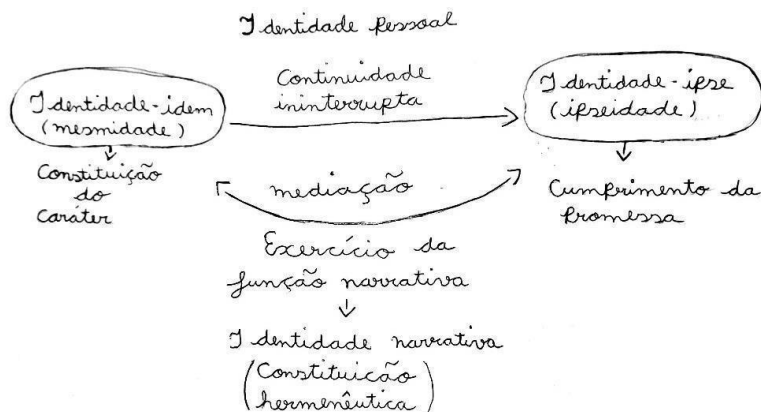 Identidade Pessoal
Continuidade
ininterrupta
Identidade-idem
(mesmidade)
Identidade-ipse
(ipseidade)
Constituição
do
Caráter
mediação
Cumprimento da
Promessa
Exercício da
função narrativa
Identidade narrativa
(Constituição
hermenêutica)